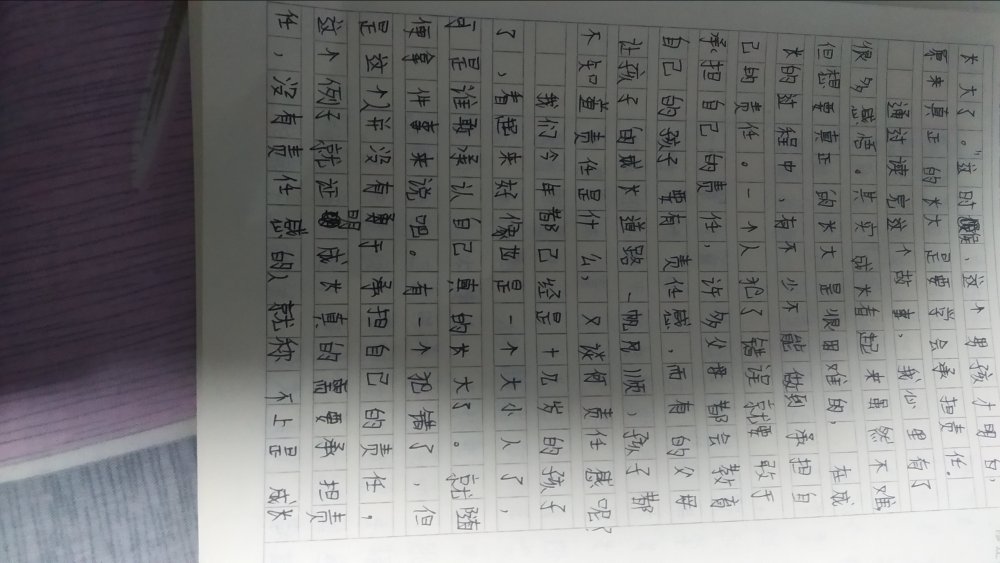 长大了。”这时候,这个男孩才明白,
原来真正的长大是要学会承担责任!
通过读完这个故事,我心里有了
很多感悟。其实成长看起来虽然不难
但想要真正的长大是很困难的,在成
长的过程中,有不少不能做到承担自
己的责任。一个人犯了错误就要敢于
承担自己的责任,许多父母都会教育
自己的孩子要有责任感,而有的父母
让孩子的成长道路一帆风顺,孩子都
不知道责任是什么,又谈何责任感呢?
我们今年都已经是十几岁的孩子
了,看起来好像也是一个大小人了,
可是谁敢承认自己真的长大了。就随
便拿件事来说吧。有一个犯错了,但
是这个人并没有勇于承担自己的责任。
这个例子就证明成长真的需要承担责
任,没有责任感的人就称不上是成长